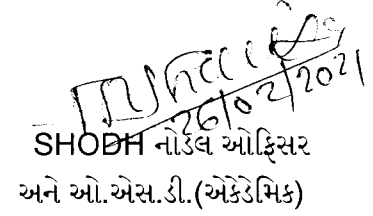 26/02/2021
SHODH નોડેલ ઓફિસર
અને ઓ.એસ.ડી.(એકેડેમિક)